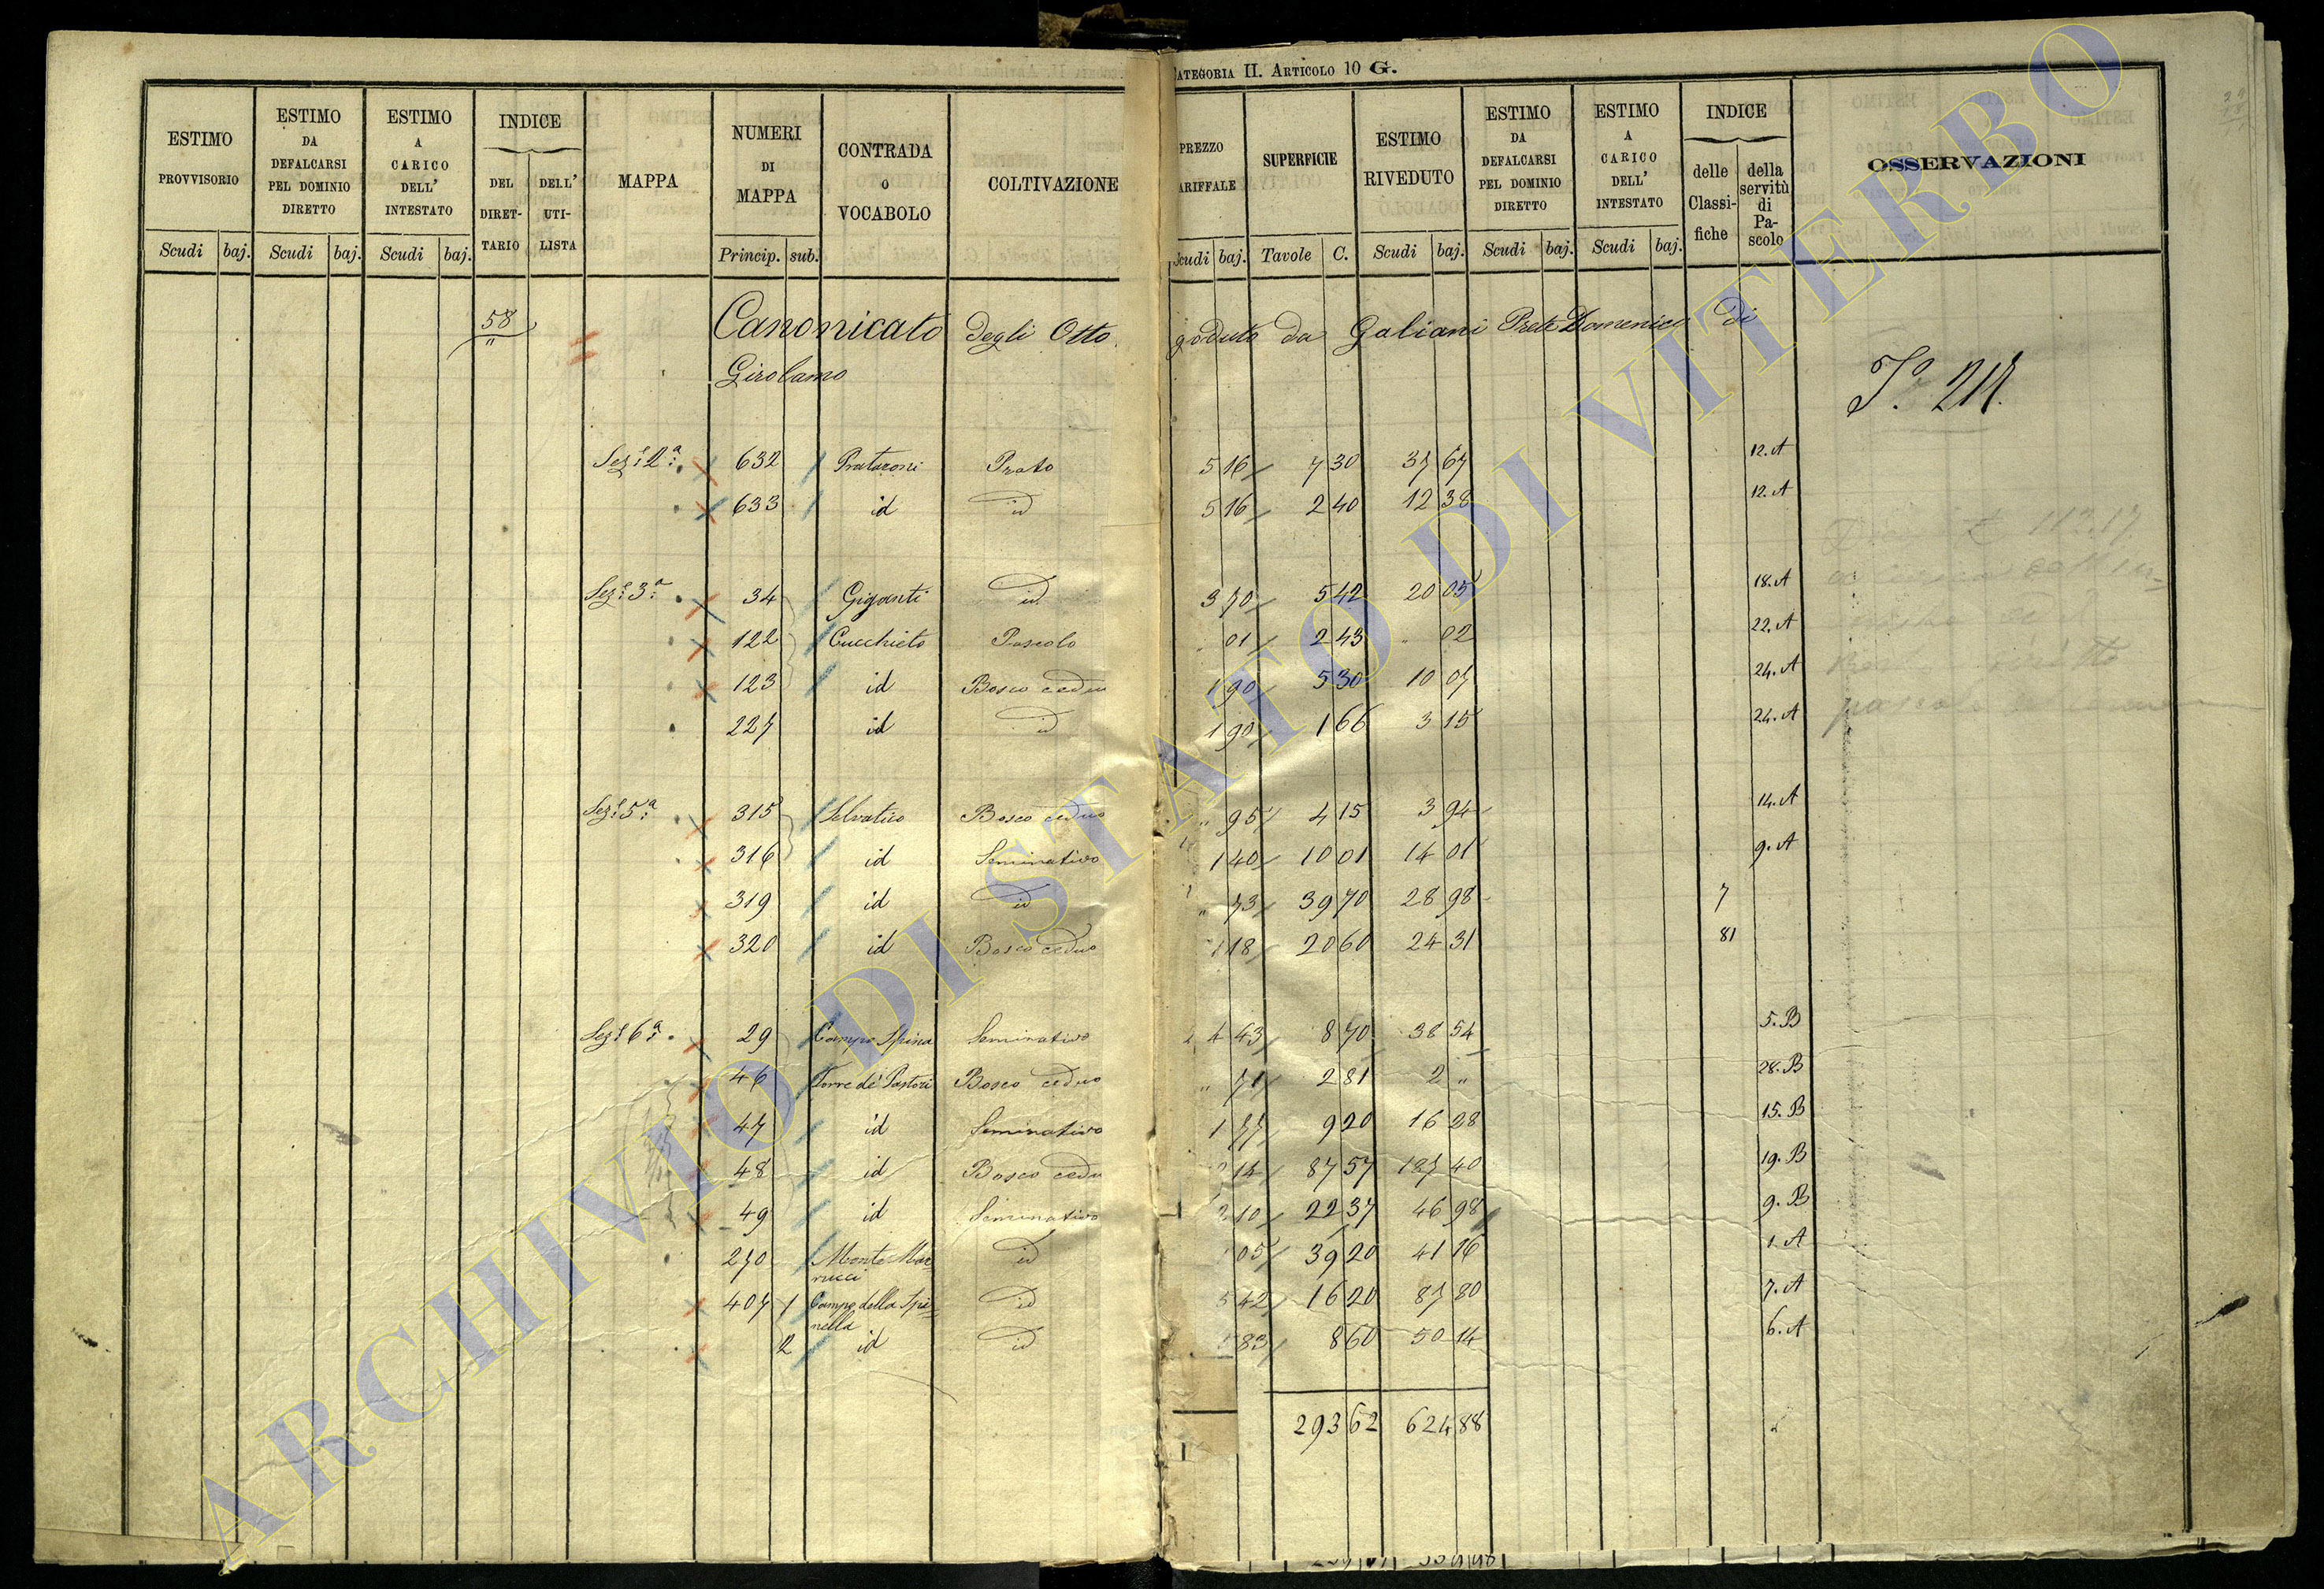 CATEGORIA II. ARTICOLO 10 G.
ESTIMO PROVVISORIO Scudi baj.
ESTIMO DA DEFALCARSI PEL DOMINIO DIRETTO Scudi baj.
ESTIMO A CARICO DELL' INTESTATO Scudi baj.
INDICE DEL DIRET-TARIO DELL' UTI-LISTA
MAPPA
NUMERI DI MAPPA Princip. sub.
CONTRADA O VOCABOLO
COLTIVAZIONE
PREZZO TARIFFALE Scudi baj.
SUPERFICIE Tavole C.
ESTIMO RIVEDUTO Scudi baj.
ESTIMO DA DEFALCARSI PEL DOMINIO DIRETTO Scudi baj.
ESTIMO A CARICO DELL' INTESTATO Scudi baj.
INDICE delle Classi-fiche della servitù di Pa-scolo
OSSERVAZIONI
58 Canonicato degli Otto goduto da Galiani Prete Domenico di
Girolamo
Sez.e 2.a 632 Prataroni Prato 5 16 7 30 37 67 12. A
633 id id 5 16 2 40 12 38 12. A
Sez.e 3.a 34 Giganti id 3 70 5 42 20 05 18. A
122 Cucchieto Pascolo 01 2 43 " 02 22. A
123 id Bosco ceduo 1 90 5 30 10 07 24. A
227 id id 1 90 1 66 3 15 24. A
Sez.e 5.a 315 Selvatico Bosco ceduo " 95 4 15 3 94 14. A
316 id Seminativo 1 40 10 01 14 01 9. A
319 id id " 73 39 70 28 98 7
320 id Bosco ceduo 1 18 20 60 24 31 81
Sez.e 6.a 29 Campo Spina Seminativo 4 43 8 70 38 54 5. B
46 Torre de' Pastori Bosco ceduo " 71 2 81 2 " 28. B
47 id Seminativo 1 77 9 20 16 28 15. B
48 id Bosco cedu 2 14 87 57 187 40 19. B
49 id Seminativo 2 10 22 37 46 98 9. B
270 Monte Mar-rucci id 1 05 39 20 41 16 1. A
407 1 Campo della Spi-nella id 5 42 16 20 87 80 7. A
2 id id 5 83 8 60 50 14 6. A
293 62 624 88
ARCHIVIO DI STATO DI VITERBO